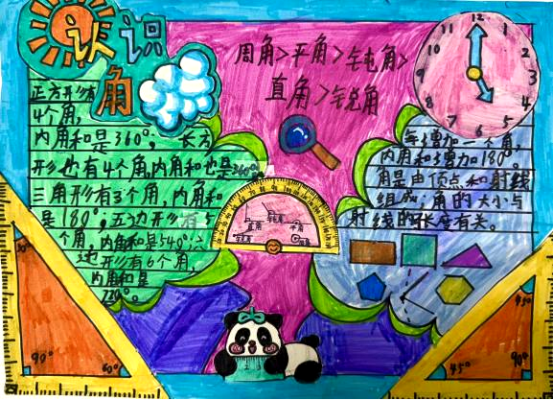 认识
角
周角>平角>钝角>
直角>锐角
正方形有
4个角,
内角和是360°, 长方
形也有4个角,内角和也是360°
三角形有3个角,内角和
是180°;五边形有5
个角,内角和是540°;六
边形有6个角,
内角和是
720°。
每增加一个角,
内角和增加180°。
角是由顶点和射线
组成;角的大小与
射线的长度有关。
12
11
1
10
2
9
3
8
4
7
5
6
90°
60°
45°
45°
90°